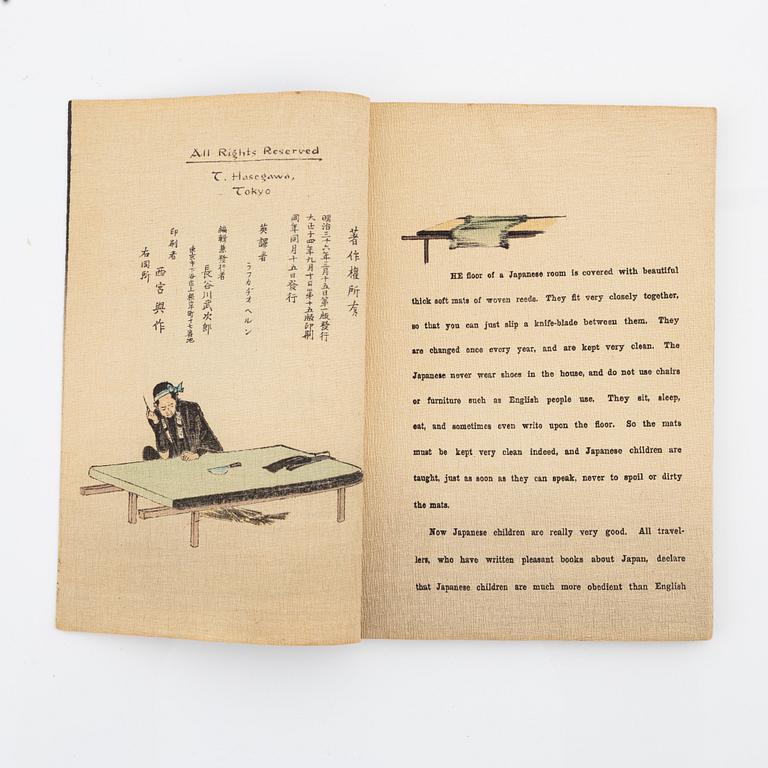 All Rights Reserved
T. Hasegawa,
Tokyo
著作權所有
明治三十六年三月十五日第一版發行
大正十四年九月十日第十五版印刷
同年同月十五日發行
英譯者
ラフカヂオ ヘルン
編輯兼發行者
長谷川武次郎
東京市下谷區上根岸町十七番地
印刷者
西宮與作
右同所
HE floor of a Japanese room is covered with beautiful
thick soft mats of woven reeds. They fit very closely together,
so that you can just slip a knife-blade between them. They
are changed once every year, and are kept very clean. The
Japanese never wear shoes in the house, and do not use chairs
or furniture such as English people use. They sit, sleep,
eat, and sometimes even write upon the floor. So the mats
must be kept very clean indeed, and Japanese children are
taught, just as soon as they can speak, never to spoil or dirty
the mats.
Now Japanese children are really very good. All travel-
lers, who have written pleasant books about Japan, declare
that Japanese children are much more obedient than English